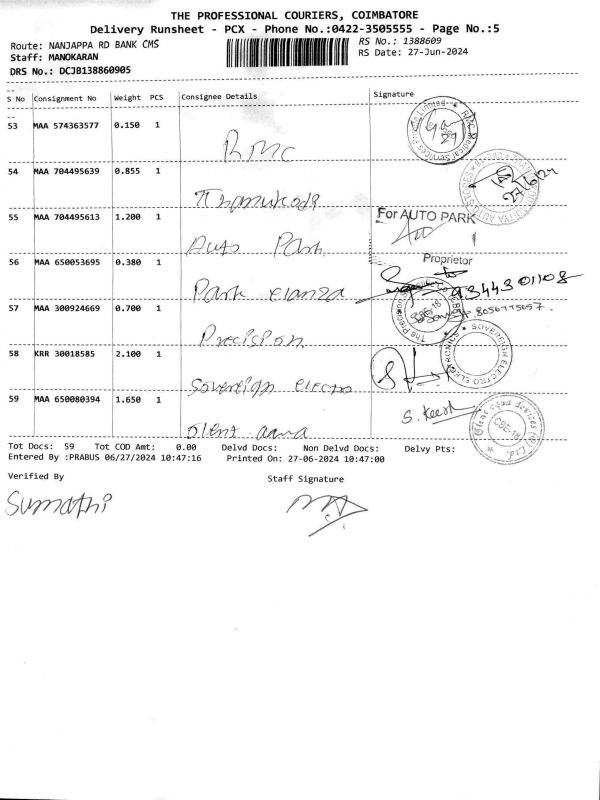 THE PROFESSIONAL COURIERS, COIMBATORE
Delivery Runsheet - PCX - Phone No.:0422-3505555 - Page No.:5
Route: NANJAPPA RD BANK CMS
RS No.: 1388609
Staff: MANOKARAN
RS Date: 27-Jun-2024
DRS No.: DCJB138860905
S No Consignment No Weight PCS Consignee Details Signature
53 MAA 574363577 0.150 1
RMC
54 MAA 704495639 0.855 1
27/6/24
55 MAA 704495613 1.200 1
Auto Park
For AUTO PARK
Proprietor
56 MAA 650053695 0.380 1
Park elanza
9344301108
57 MAA 300924669 0.700 1
Precision
58 KRR 30018585 2.100 1
Sovereign electro
59 MAA 650080394 1.650 1
S. Keerth
CBE-18
Tot Docs: 59 Tot COD Amt: 0.00 Delvd Docs: Non Delvd Docs: Delvy Pts:
Entered By :PRABUS 06/27/2024 10:47:16 Printed On: 27-06-2024 10:47:00
Verified By
Staff Signature
Sumathi